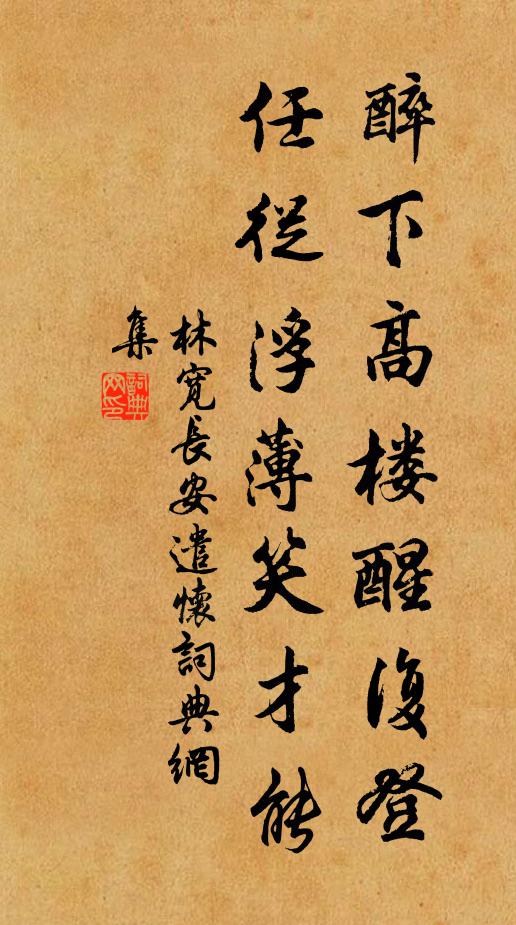 醉下高楼醒復登
任從浮薄笑才能
林寬長安遣懷詞典網
集
詞典
网印